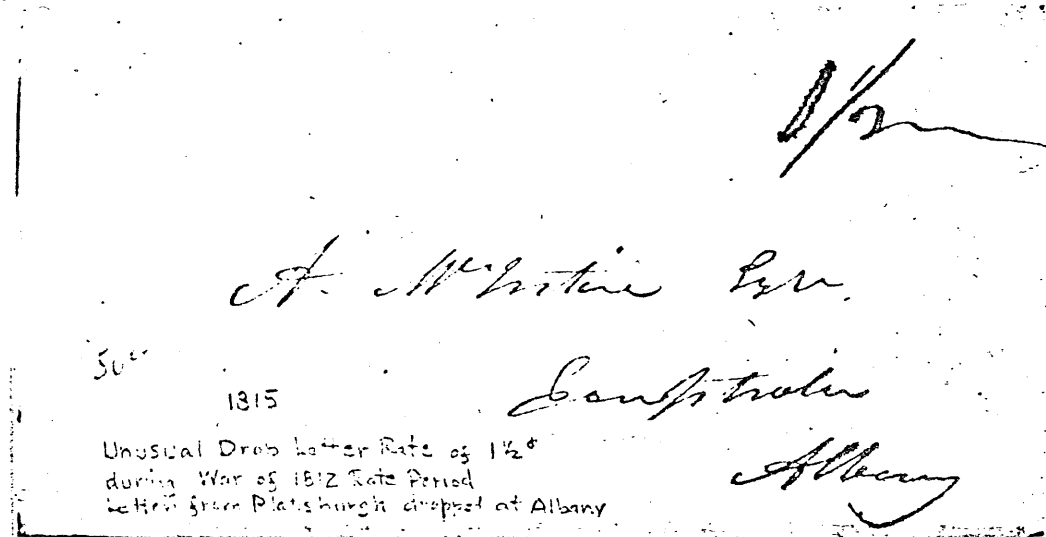 1 1/2
A. McIntire Esqr.
Comptroller
Albany
50.00
1815
Unusual Drop Letter Rate of 1½¢
during War of 1812 Rate Period
Letter from Platsburgh dropped at Albany